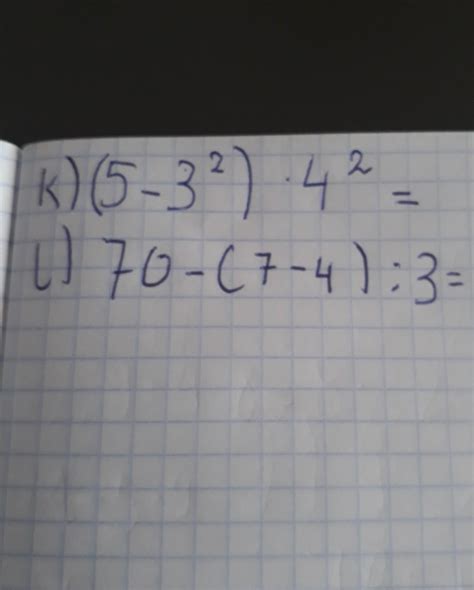 k) (5-3²) · 4² =
l) 70-(7-4) : 3 =